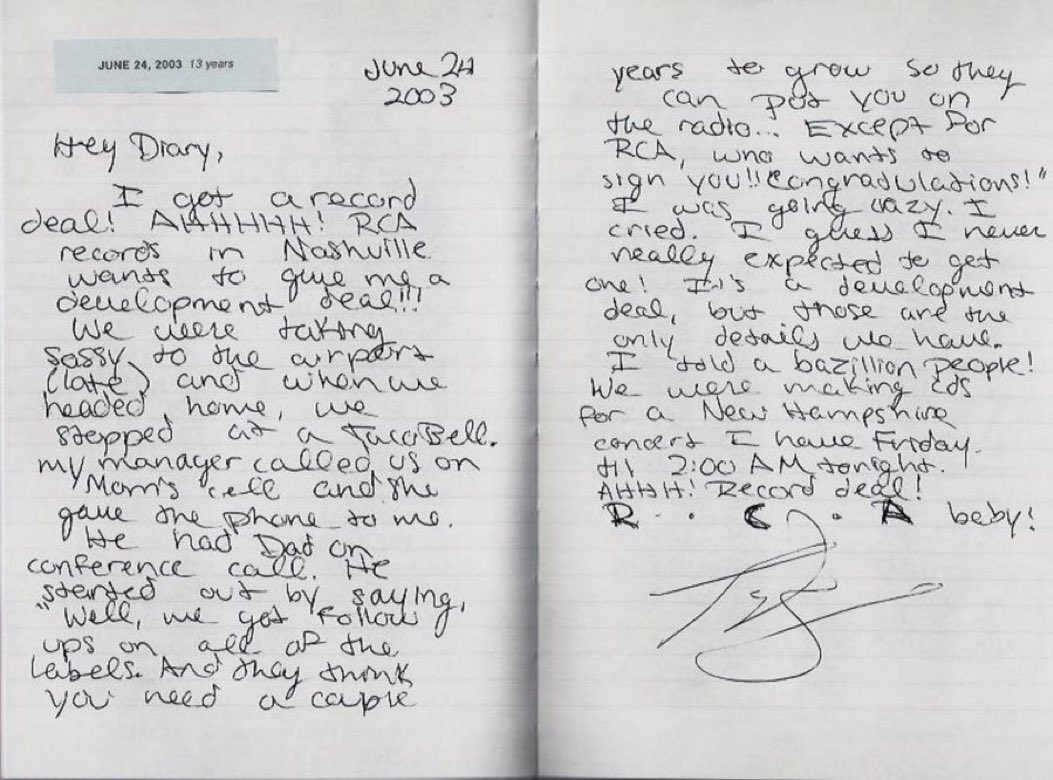 JUNE 24, 2003 13 years
June 24
2003
Hey Diary,
I got a record
deal! AHHHHH! RCA
records in Nashville
wants to give me a
development deal!!!
We were taking
Sassy to the airport
(late) and when we
headed home, we
stopped at a Taco Bell.
my manager called us on
Mom's cell and she
gave the phone to me.
He had Dad on
conference call. He
started out by saying,
"Well, we got follow
ups on all of the
labels. And they think
you need a couple
years to grow so they
can put you on
the radio... Except for
RCA, who wants to
sign you!! Congradulations!"
I was going crazy. I
cried. I guess I never
really expected to get
one! It's a development
deal, but those are the
only details we have.
I told a bazillion people!
We were making cds
for a New Hampshire
concert I have Friday.
til 2:00 AM tonight.
AHHH! Record deal!
R . . C . . A baby!